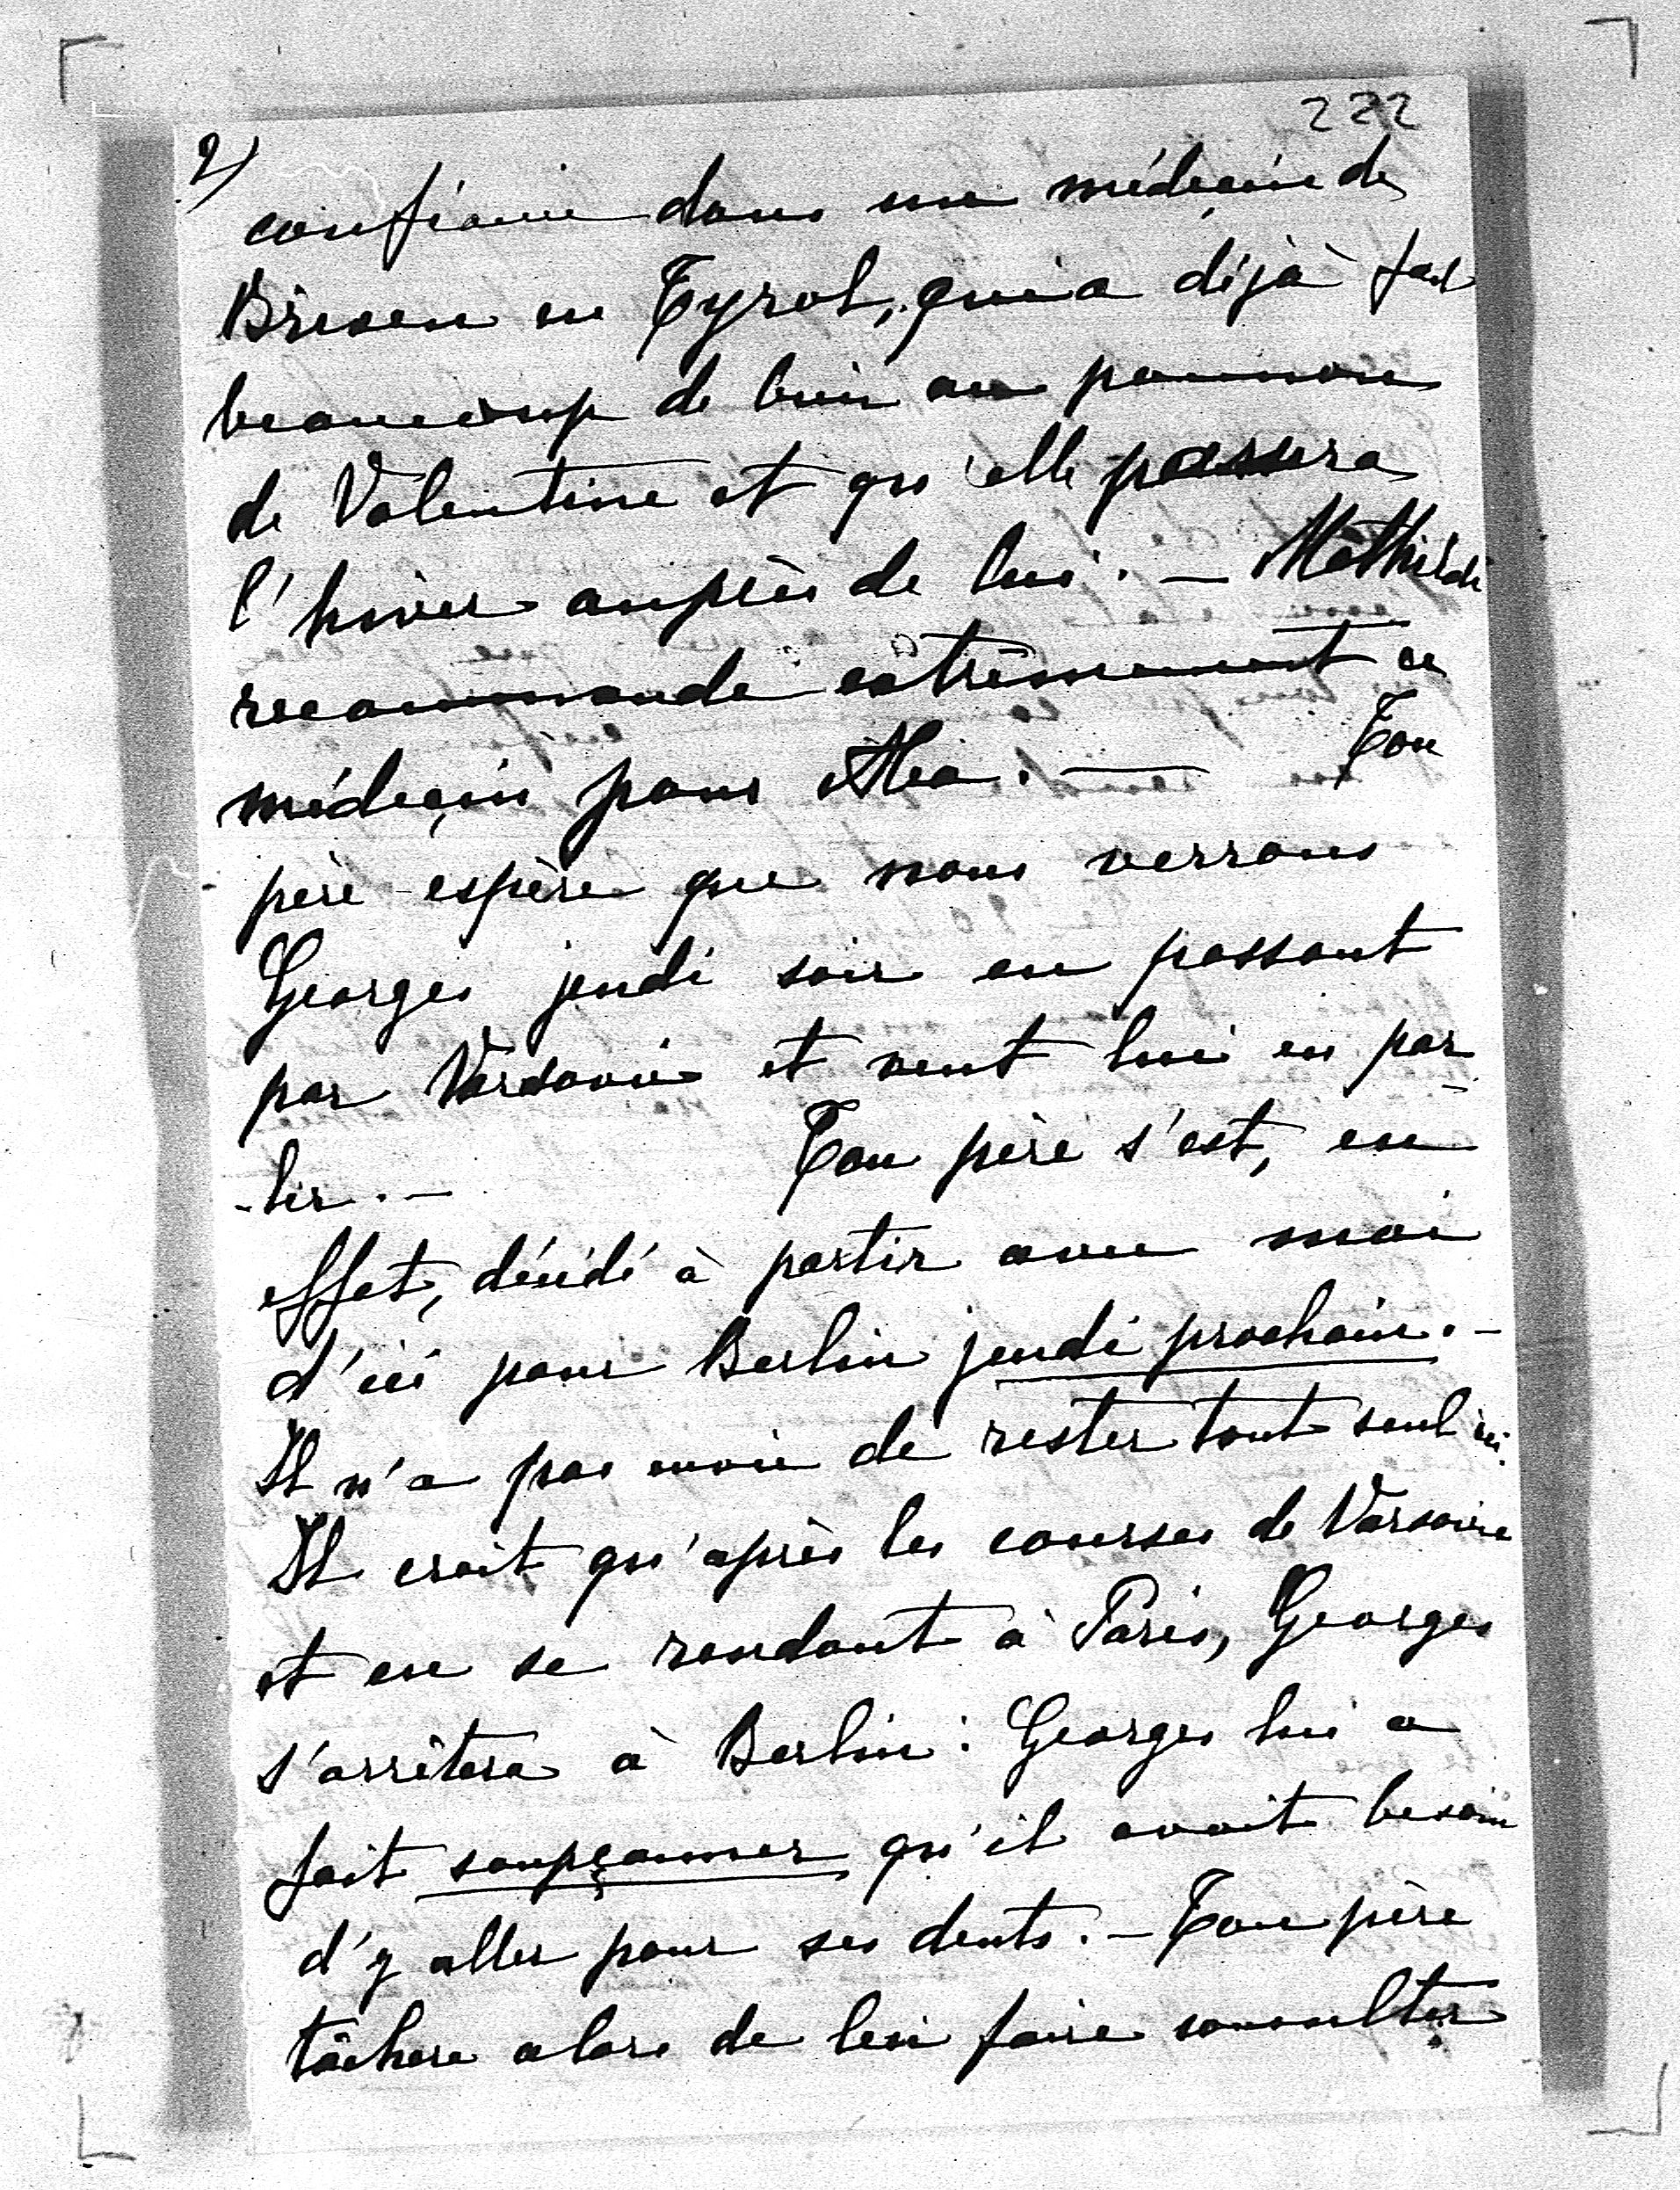 222
2)
confiance dans un médecin de
Brixen en Tyrol, qui a déjà fait
beaucoup de bien au poumon
de Valentine et qu'elle passera
l'hiver auprès de lui. — Mathilde
recommande extrêmement ce
médecin pour Mia. — Ton
père espère que nous verrons
Georges jeudi soir en passant
par Varsovie et veut lui en par-
-ler. — Ton père s'est, en
effet, décidé à partir avec moi
d'ici pour Berlin jeudi prochain. —
Il n'a pas envie de rester tout seul ici.
Il croit qu'après les courses de Varsovie
et en se rendant à Paris, Georges
s'arrêtera à Berlin: Georges lui a
fait soupçonner qu'il avait besoin
d'y aller pour ses dents. — Ton père
tâchera alors de lui faire consulter